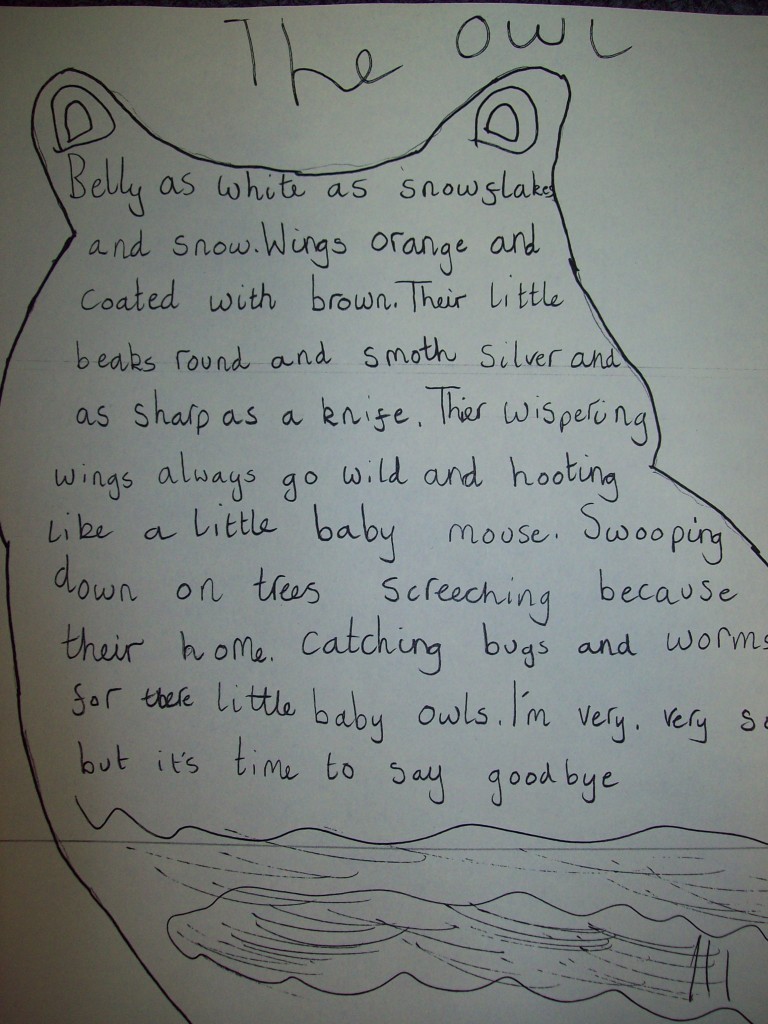 The OWL
Belly as white as snowflakes
and snow. Wings orange and
coated with brown. Their little
beaks round and smoth silver and
as sharp as a knife. Thier wispering
wings always go wild and hooting
like a little baby mouse. Swooping
down on trees screeching because
their home. Catching bugs and worms
for there little baby owls. I'm very, very
but it's time to say goodbye